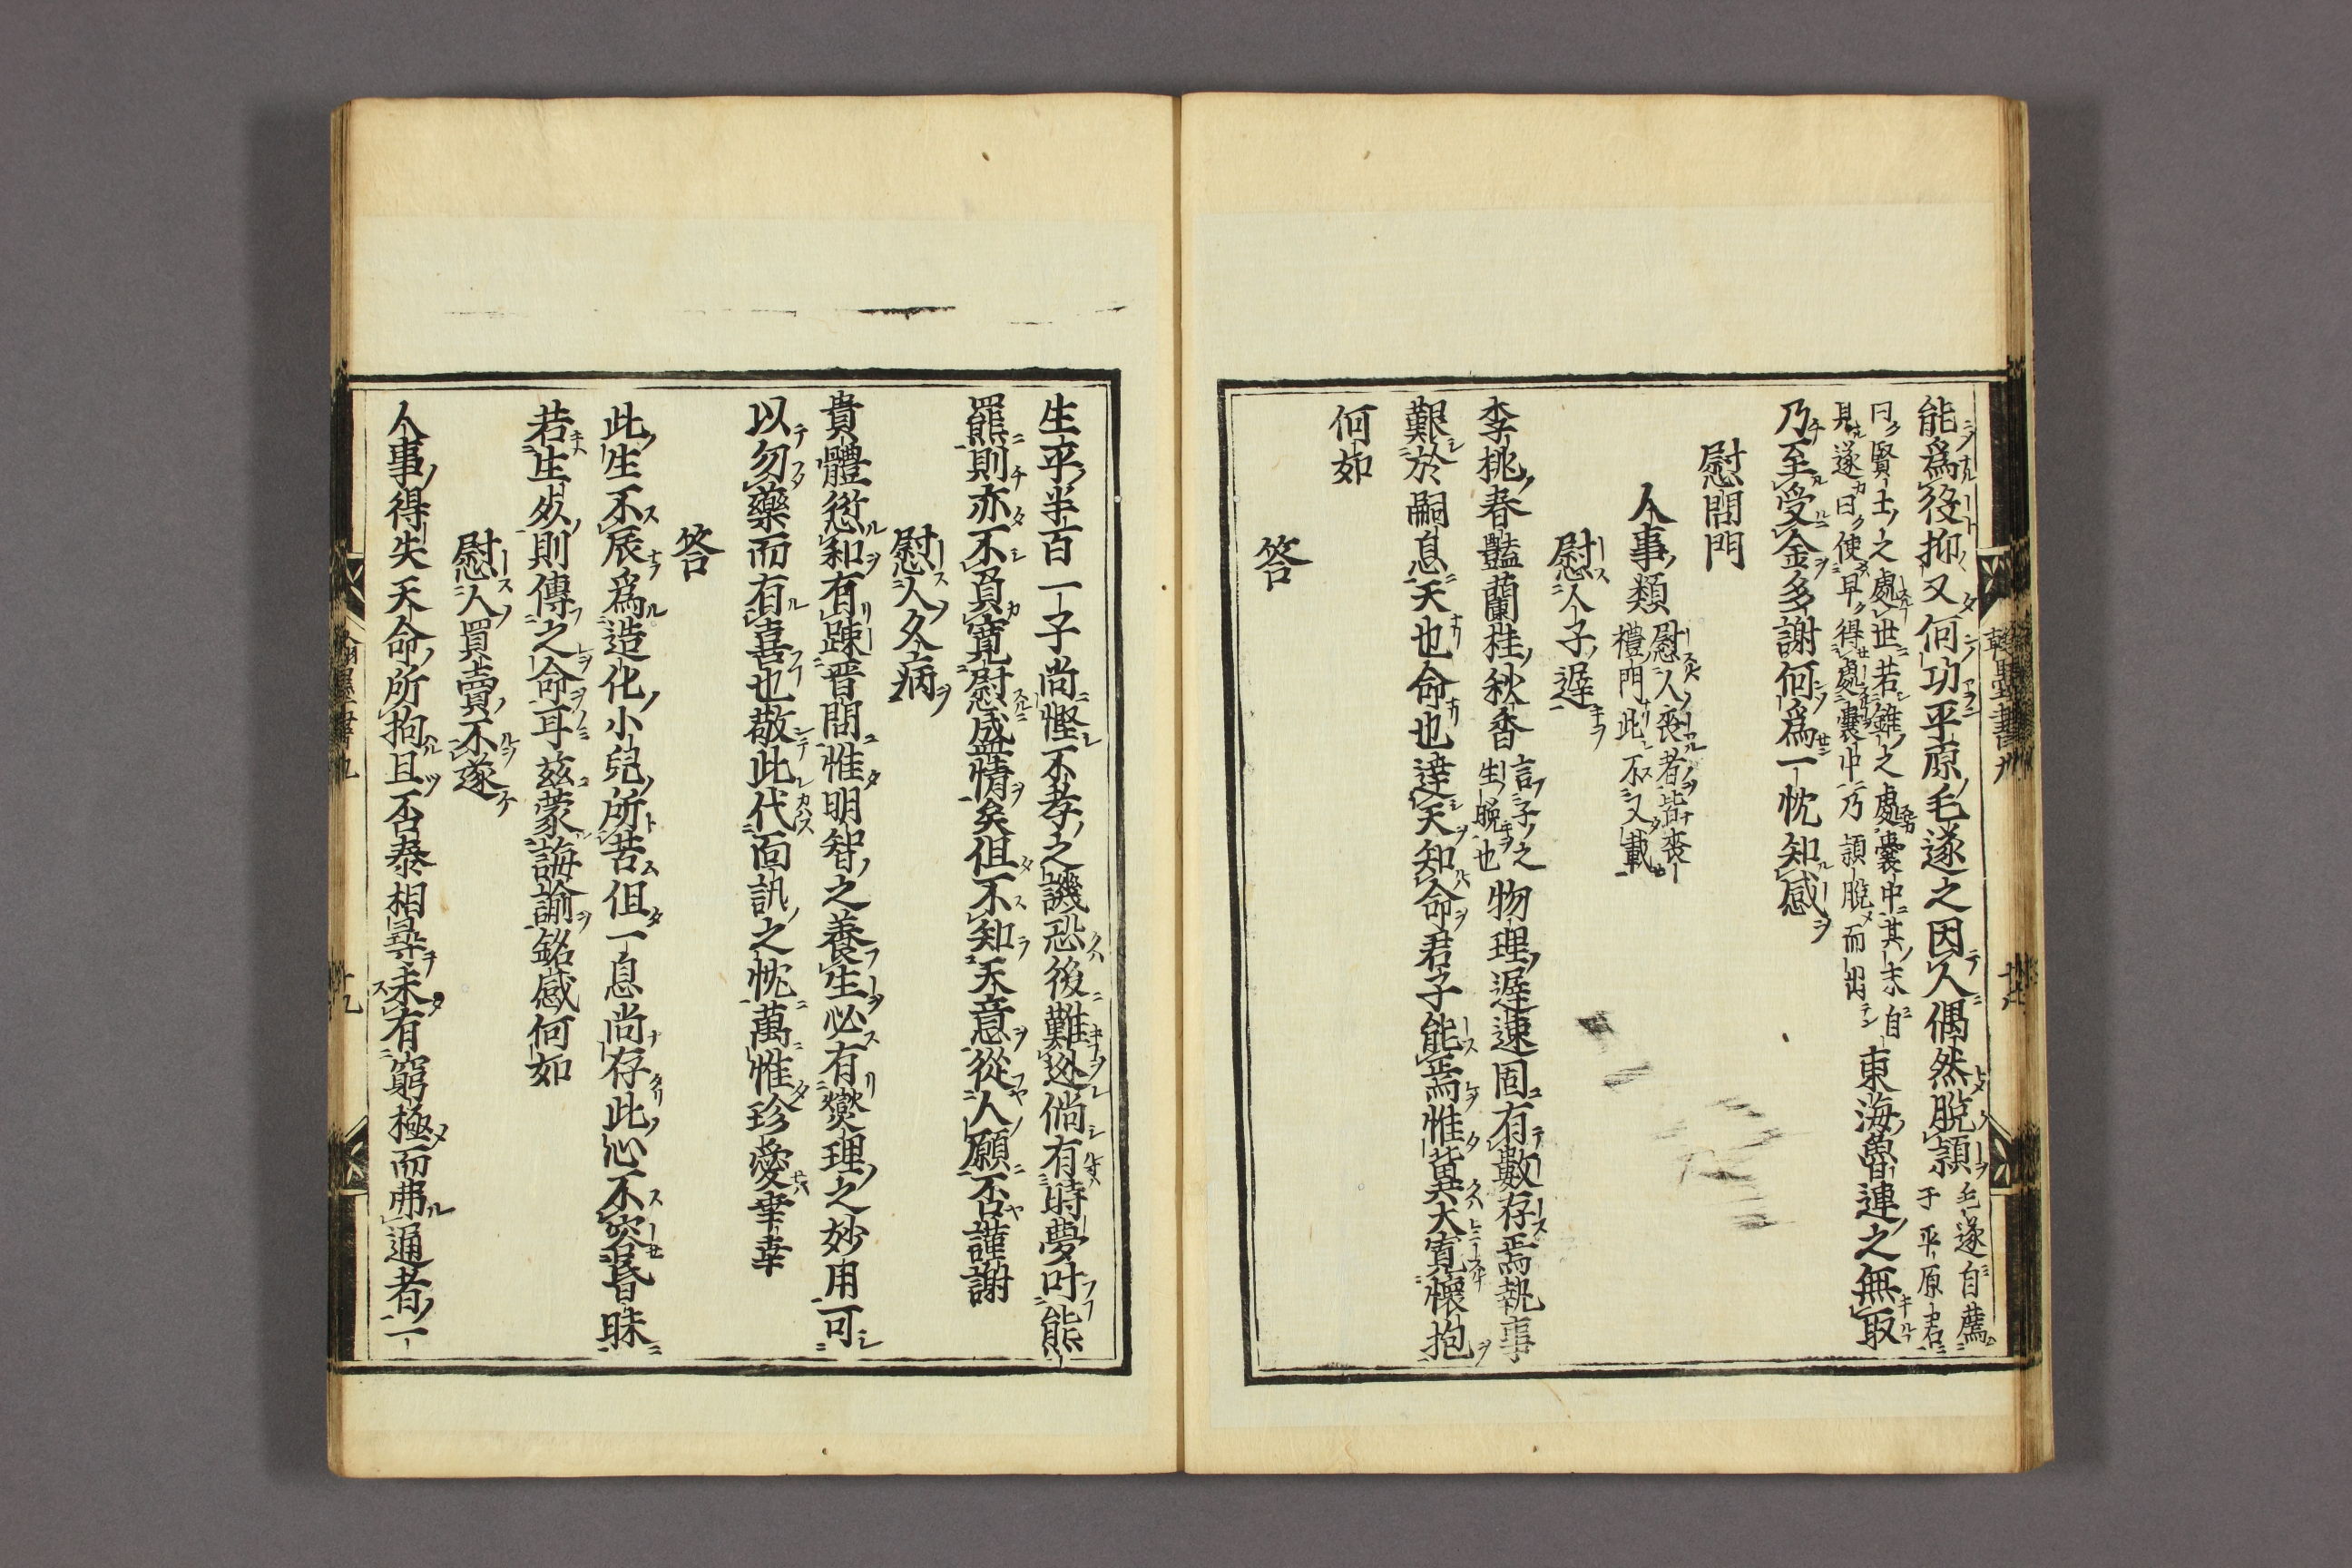 能為役抑又何功平原毛遂之因人偶然脫穎毛遂自薦于平原君
曰賢士之處世若錐之處囊中其末自見遂曰使早得處囊中乃穎脫而出東海魯連之無取
乃至受金多謝何為一忱知感
慰問門
人事類慰人喪者皆喪禮門此不又載
慰人子遲
李桃春豔蘭桂秋香言子之生晚也物理遲速固有數存焉執事
艱於嗣息天也命也達天知命君子能焉惟冀大寬懷抱
何如
答
生平半百一子尚慳不孝之譏恐後難逃倘有時夢叶熊
羆則亦不負寬慰盛情矣但不知天意從人願否謹謝
慰人久病
貴體愆和有疎晋問惟明智之養生必有爕理之妙用可
以勿藥而有喜也敬此代面訊之忱萬惟珍愛幸幸
答
此生不辰為造化小兒所苦但一息尚存此心不容昏昧
若生死則傳之命耳茲蒙誨諭銘感何如
慰人買賣不遂
人事得失天命所拘且否泰相尋未有窮極而弗通者一